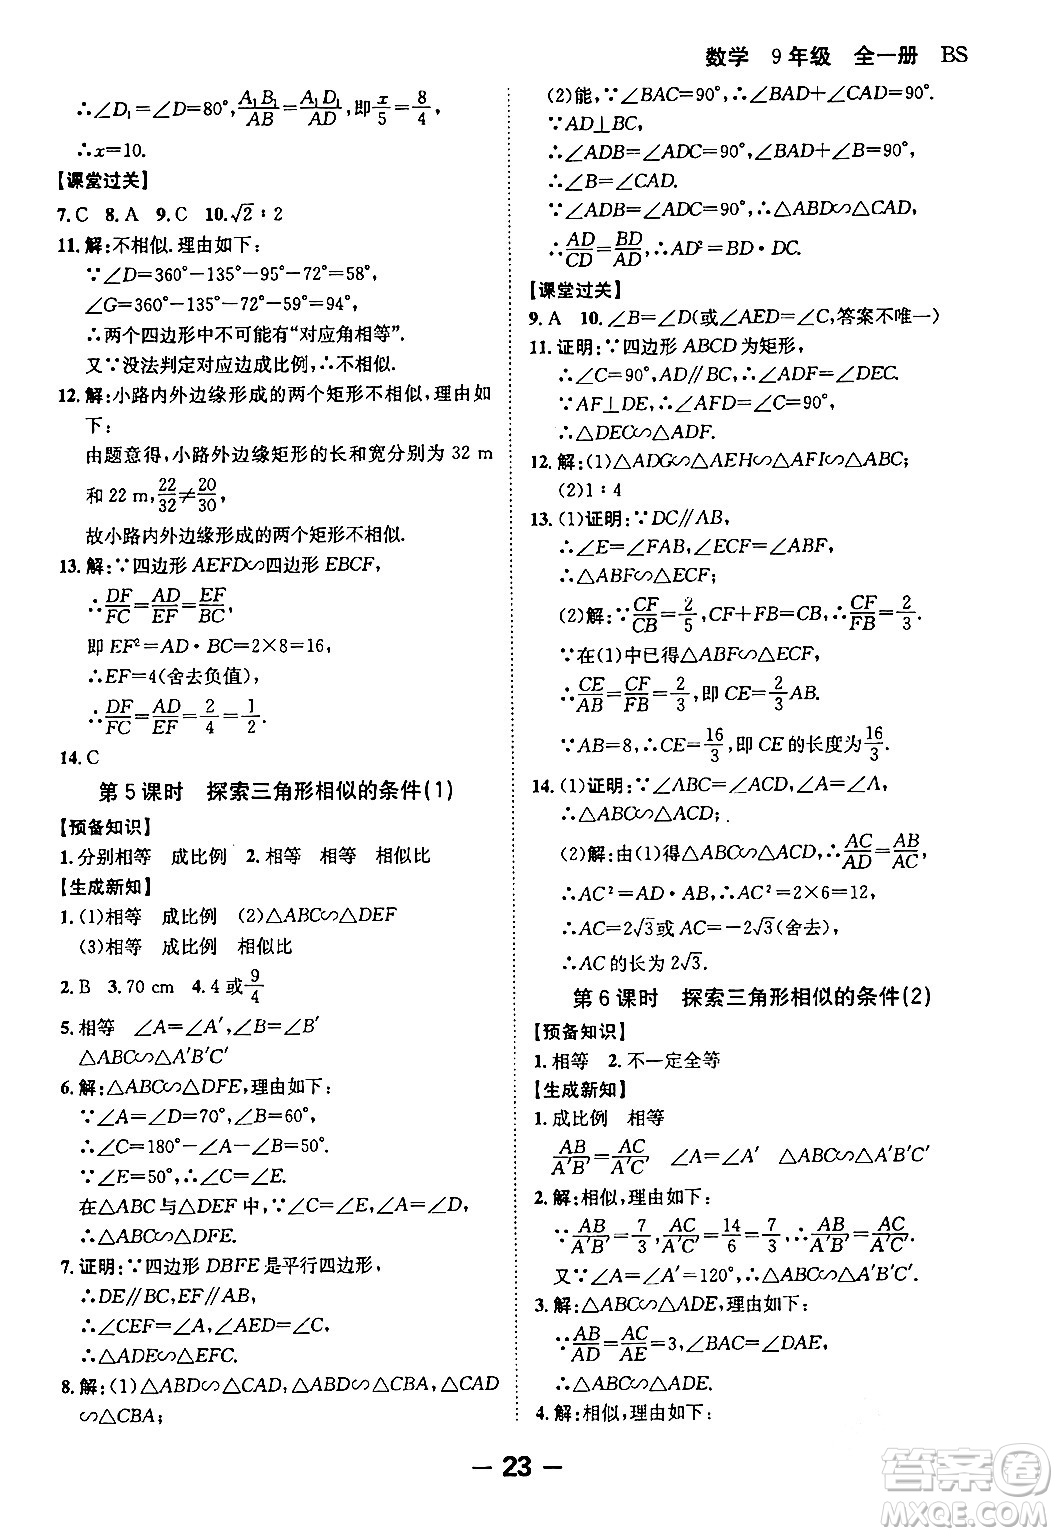 数学 9年级 全一册 BS
∴∠D₁=∠D=80°,A₁B₁/AB=A₁D₁/AD,即x/5=8/4,
∴x=10.
【课堂过关】
7.C 8.A 9.C 10.√2∶2
11.解:不相似.理由如下:
∵∠D=360°-135°-95°-72°=58°,
∠G=360°-135°-72°-59°=94°,
∴两个四边形中不可能有“对应角相等”.
又∵没法判定对应边成比例,∴不相似.
12.解:小路内外边缘形成的两个矩形不相似,理由如
下:
由题意得,小路外边缘矩形的长和宽分别为 32 m
和 22 m,22/32≠20/30,
故小路内外边缘形成的两个矩形不相似.
13.解:∵四边形 AEFD∽四边形 EBCF,
∴DF/FC=AD/EF=EF/BC,
即 EF²=AD·BC=2×8=16,
∴EF=4(舍去负值),
∴DF/FC=AD/EF=2/4=1/2.
14.C
第 5 课时 探索三角形相似的条件(1)
【预备知识】
1.分别相等 成比例 2.相等 相等 相似比
【生成新知】
1.(1)相等 成比例 (2)△ABC∽△DEF
(3)相等 成比例 相似比
2.B 3.70 cm 4.4 或9/4
5.相等 ∠A=∠A′,∠B=∠B′
△ABC∽△A′B′C′
6.解:△ABC∽△DFE,理由如下:
∵∠A=∠D=70°,∠B=60°,
∴∠C=180°-∠A-∠B=50°.
∵∠E=50°,∴∠C=∠E.
在△ABC 与△DEF 中,∵∠C=∠E,∠A=∠D,
∴△ABC∽△DFE.
7.证明:∵四边形 DBFE 是平行四边形,
∴DE∥BC,EF∥AB,
∴∠CEF=∠A,∠AED=∠C,
∴△ADE∽△EFC.
8.解:(1)△ABD∽△CAD,△ABD∽△CBA,△CAD
∽△CBA;
(2)能,∵∠BAC=90°,∴∠BAD+∠CAD=90°.
∵AD⊥BC,
∴∠ADB=∠ADC=90°,∠BAD+∠B=90°,
∴∠B=∠CAD.
又∵∠ADB=∠ADC=90°,∴△ABD∽△CAD,
∴AD/CD=BD/AD,∴AD²=BD·DC.
【课堂过关】
9.A 10.∠B=∠D(或∠AED=∠C,答案不唯一)
11.证明:∵四边形 ABCD 为矩形,
∴∠C=90°,AD∥BC,∴∠ADF=∠DEC.
∵AF⊥DE,∴∠AFD=∠C=90°,
∴△DEC∽△ADF.
12.解:(1)△ADG∽△AEH∽△AFI∽△ABC;
(2)1∶4
13.(1)证明:∵DC∥AB,
∴∠E=∠FAB,∠ECF=∠ABF,
∴△ABF∽△ECF;
(2)解:∵CF/CB=2/5,CF+FB=CB,∴CF/FB=2/3.
∵在(1)中已得△ABF∽△ECF,
∴CE/AB=CF/FB=2/3,即 CE=2/3AB.
∵AB=8,∴CE=16/3,即 CE的长度为16/3.
14.(1)证明:∵∠ABC=∠ACD,∠A=∠A,
∴△ABC∽△ACD;
(2)解:由(1)得△ABC∽△ACD,∴AC/AD=AB/AC,
∴AC²=AD·AB,∴AC²=2×6=12,
∴AC=2√3或 AC=-2√3(舍去),
∴AC 的长为 2√3.
第 6 课时 探索三角形相似的条件(2)
【预备知识】
1.相等 2.不一定全等
【生成新知】
1.成比例 相等
AB/A′B′=AC/A′C′ ∠A=∠A′ △ABC∽△A′B′C′
2.解:相似,理由如下:
∵AB/A′B′=7/3,AC/A′C′=14/6=7/3,∴AB/A′B′=AC/A′C′.
又∵∠A=∠A′=120°,∴△ABC∽△A′B′C′.
3.解:△ABC∽△ADE,理由如下:
∵AB/AD=AC/AE=3,∠BAC=∠DAE,
∴△ABC∽△ADE.
4.解:相似,理由如下:
— 23 —
答案圈
MXQE.COM